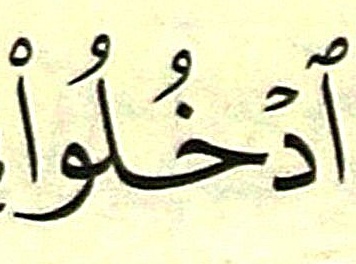 ٱدۡخُلُواْ